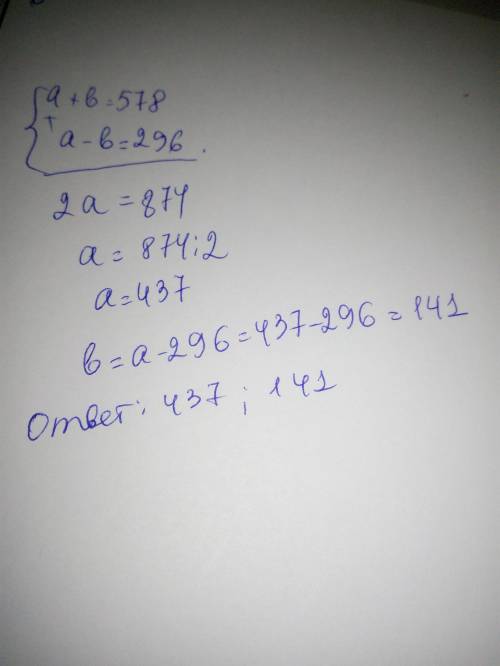 a + b = 578
+
a - b = 296
2a = 874
a = 874:2
a = 437
b = a - 296 = 437 - 296 = 141
Ответ: 437 ; 141